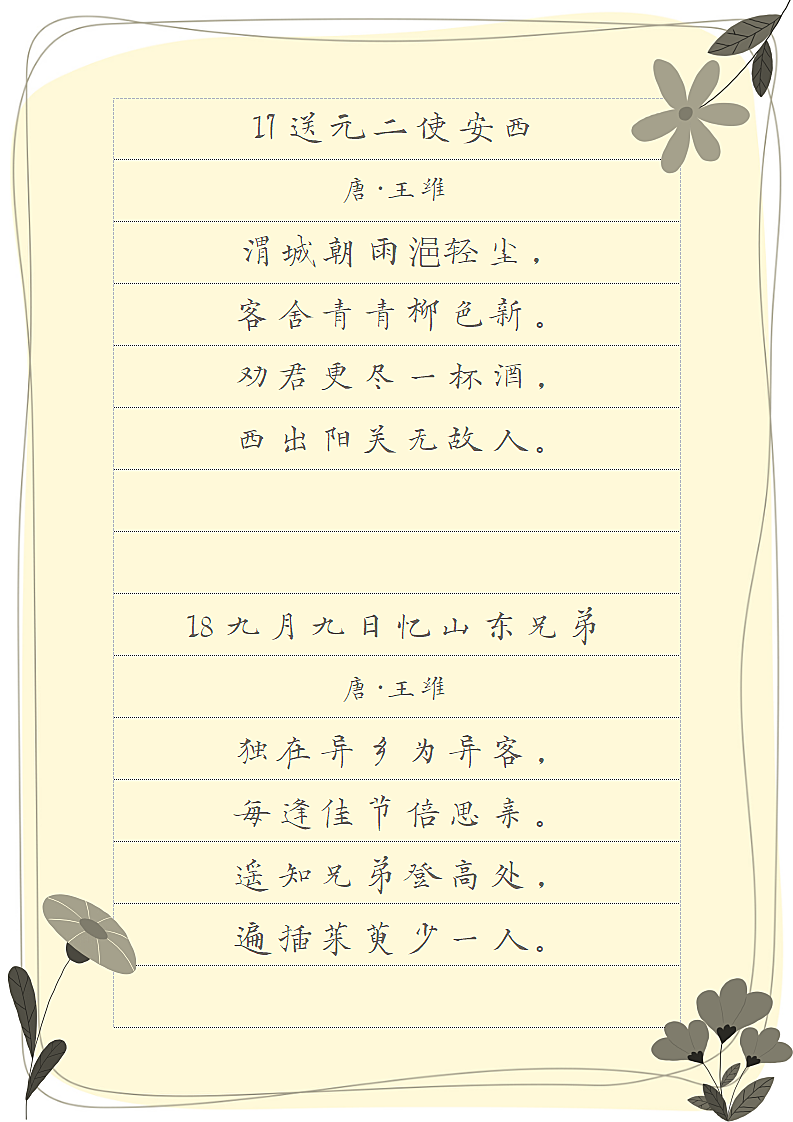 17送元二使安西
唐·王维
渭城朝雨浥轻尘，
客舍青青柳色新。
劝君更尽一杯酒，
西出阳关无故人。
18九月九日忆山东兄弟
唐·王维
独在异乡为异客，
每逢佳节倍思亲。
遥知兄弟登高处，
遍插茱萸少一人。